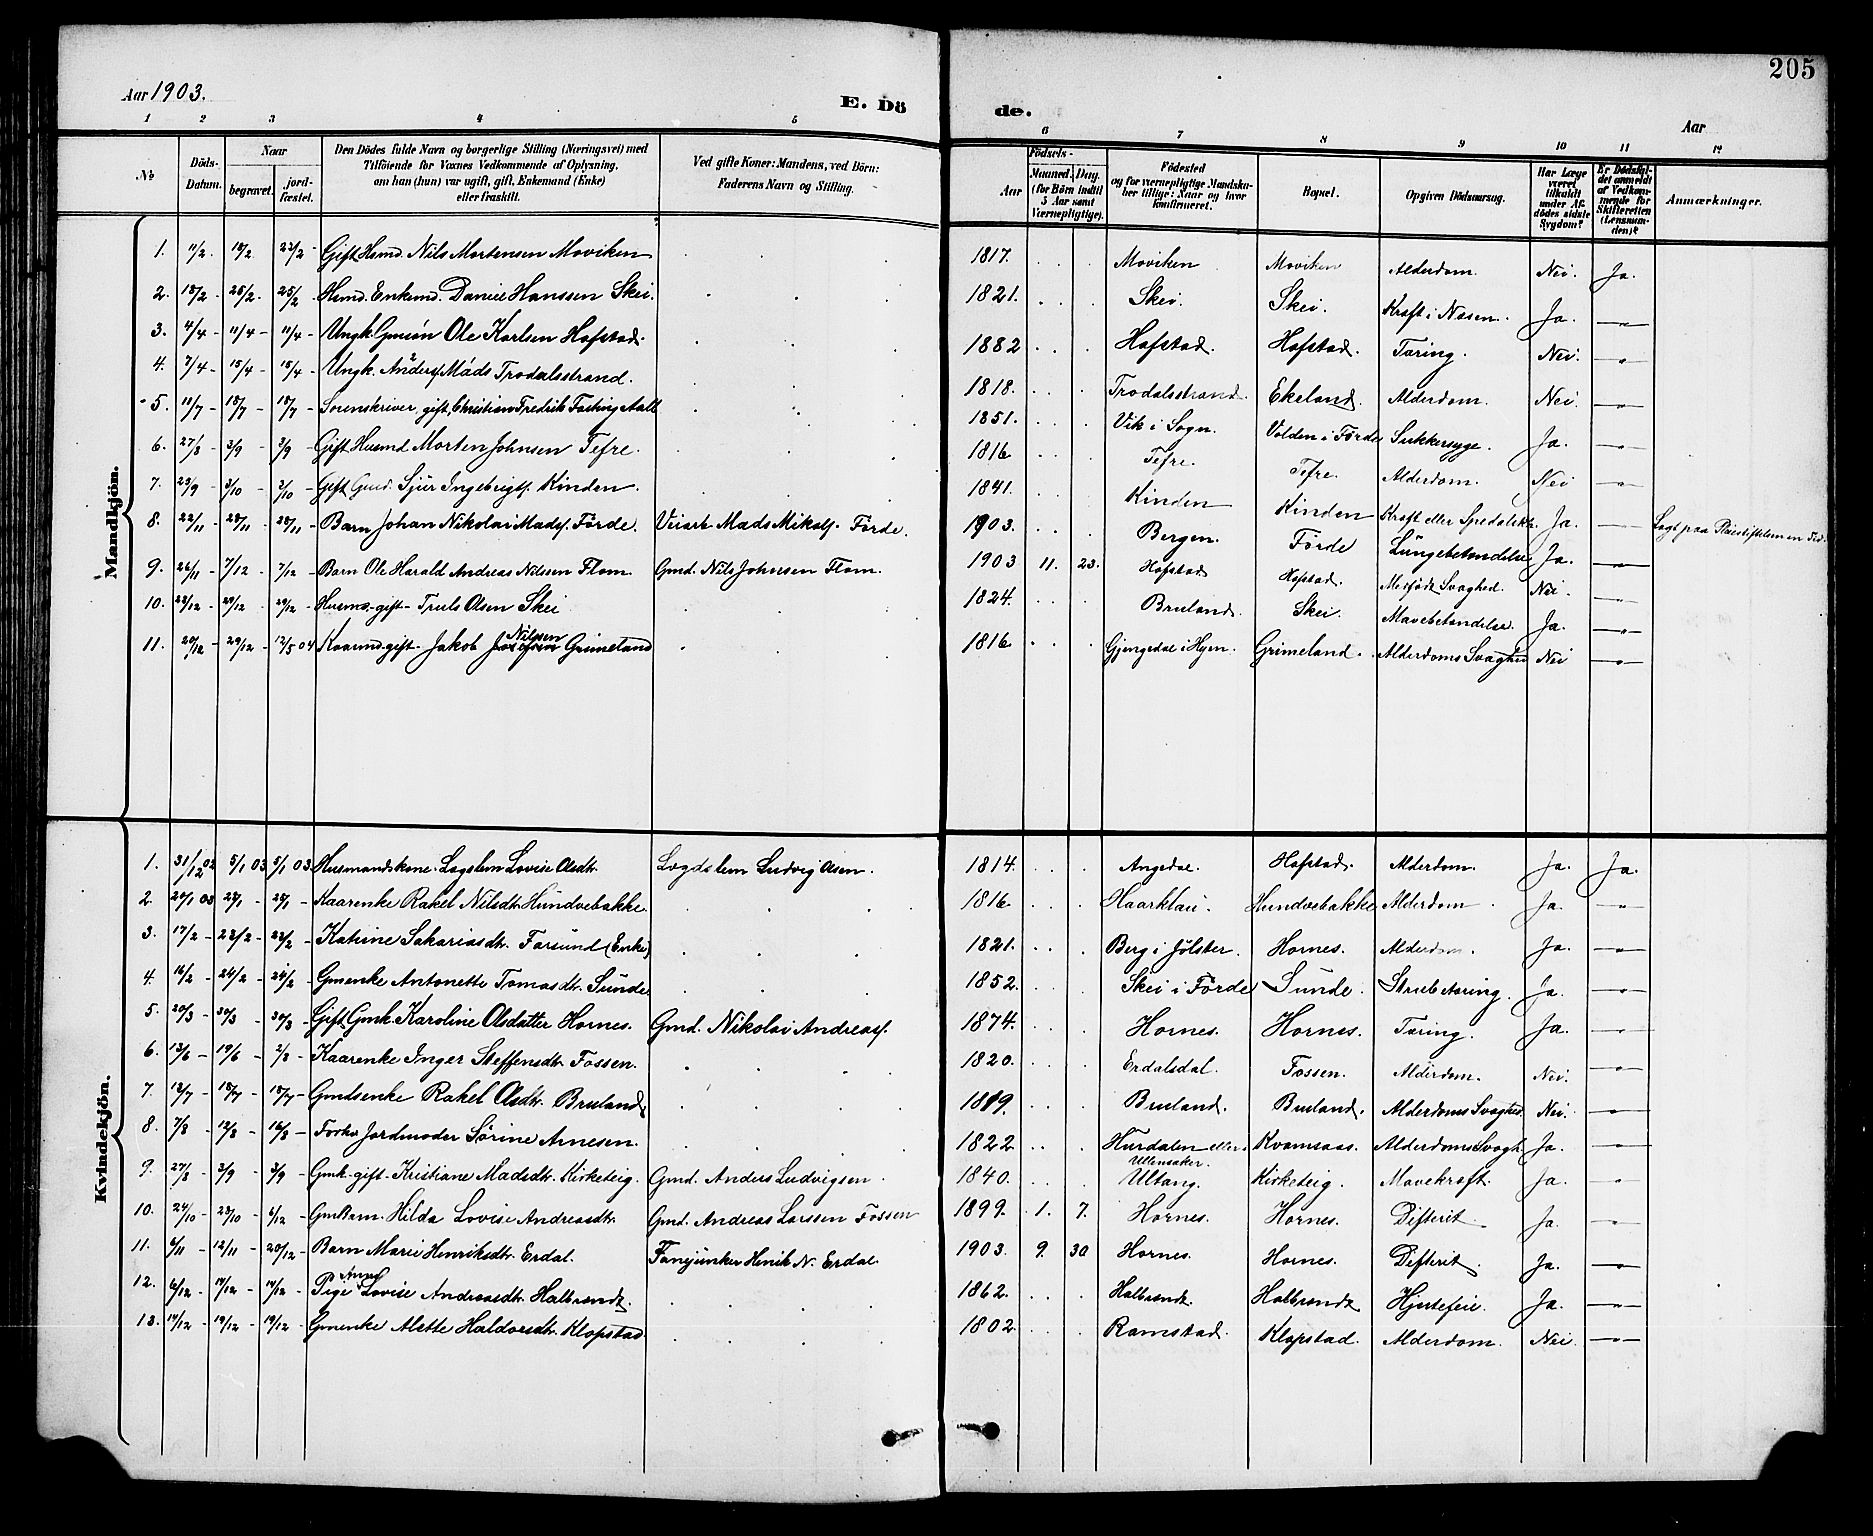 205
Aar 1903.
E. Dö
de.
Aar
1 2 3 4 5 6 7 8 9 10 11 12
No
Döds-Datum.
Naar
begravet.
jordfæstet.
Den Dödes fulde Navn og borgerlige Stilling (Næringsvei) med
Tilföiende for Voxnes Vedkommende af Oplysning,
om han (hun) var ugift, gift, Enkemand (Enke)
eller fraskilt.
Ved gifte Koner: Mandens, ved Börn:
Faderens Navn og Stilling.
Födsels-
Aar
Maaned. Dag.
(for Börn indtil
5 Aar samt
Værnepligtige).
Födested
og for værnepligtige Mandskaber tillige: Naar og hvor
konfirmeret.
Bopæl.
Opgiven Dödsaarsag.
Har Læge
været
tilkaldt
under Afdödes sidste
Sygdom?
Er Dödsfaldet anmeldt
af Vedkommende for
Skifteretten
(Lensmanden)?
Anmærkninger.
Mandkjön.
1. 11/2 18/2 22/2 Gift Hsmd. Nils Mortensen Moviken 1817. Moviken Moviken Alderdom. Nei. Ja.
2. 18/2 25/2 25/2 Hsmd. Enkemd. Daniel Hanssen Skei. 1821. Skei. Skei. Kræft i Næsen. Ja. — " —
3. 4/4 11/4 11/4 Ungk. Gmsøn Ole Karlsen Hafstad. 1882 Hafstad. Hafstad. Tæring. Nei. — " —
4. 7/4 15/4 15/4 Ungk. Anders Mads Trodalsstrand. 1818. Trodalsstrand. Ekeland. Alderdom. Nei. — " —
5. 11/7 18/7 18/7 Sorenskriver, gift, Christian Fredrik Fasting Aall 1851. Vik i Sogn. Volden i Förde Sukkersyge. Ja. — " —
6. 27/8 3/9 3/9 Gift Husmd Morten Johnsen Tefre. 1816. Tefre. Tefre. Alderdom. Nei — " —
7. 23/9 3/10 3/10 Gift Gmd. Sjur Ingebrigts. Kinden. 1841. Kinden Kinden Kræft eller Spedalskh. Ja. — " —
8. 22/11 28/11 28/11 Barn Johan Nikolai Mads. Förde. Mads Mikals. Förde. 1903. Bergen. Förde Lungebetændelse Ja. — " —
9. 26/11 7/12 7/12 Barn Ole Harald Andreas Nilssen Flom. Gmd. Nils Johnsen Flom. 1903 11. 23. Hafstad Hafstad. Medfödt Svaghed. Nei. — " —
10. 22/12 29/12 29/12 Husmd. gift Truls Olsen Skei 1824. Bruland. Skei. Mavebetændelse. Ja. — " —
11. 20/12 29/12 12/5 04 Kaarmd. gift Jakob Nilssen Grimeland 1816. Gjengedal i Hyen. Grimeland. Alderdoms Svaghed Nei — " —
Kvindekjön.
1. 31/12 02 5/1 03 5/1 03 Husmandskone Lægslem Lovise Olsdtr. Lægdslem Ludvig Olsen. 1814. Angedal. Hafstad. Alderdom. Ja. Ja.
2. 20/1 03 28/1 28/1 Kaarenke Rakel Nilsdtr. Hundvebakke. 1816. Haarklau. Hundvebakke Alderdom. Ja. — " —
3. 17/2 22/2 22/2 Katrine Sakariasdtr. Farsund (Enke) 1821. Berg i Jölster. Hornes. Alderdom. Ja. — " —
4. 16/2 24/2 24/2 Gmenke Antonette Tomasdtr. Sunde 1852. Skei i Förde Sunde. Strubetæring. Ja. — " —
5. 20/3 30/3 30/3 Gift Gmk. Karoline Olsdatter Hornes. Gmd. Nikolai Andreass. 1874. Hornes. Hornes. Tæring. Ja. — " —
6. 13/6 19/6 2/8 Kaarenke Inger Steffensdtr. Fossen. 1820. Erdalsdal. Fossen. Alderdom. Nei. — " —
7. 12/7 18/7 18/7 Gmdsenke Rakel Olsdtr. Bruland. 1819. Bruland. Bruland. Alderdoms Svaghed. Nei. — " —
8. 7/8 12/8 16/8 Forhv. Jordmoder Sörine Arnesen. 1822 Hurdalen eller Ullensaker. Kvamsaas. Alderdoms Svagh. Ja. — " —
9. 27/8 3/9 3/9 Gmk. gift Kristiane Madsdtr. Kirketeig. Gmd. Anders Ludvigsen. 1840. Ultang. Kirketeig. Mavekræft. Ja. — " —
10. 24/10 29/10 6/12 Gmbarn. Hilda Lovise Andreasdtr. Gmd. Andreas Larssen Fossen 1899. 1. 7. Hornes. Hornes. Difterit. Ja. — " —
11. 6/11 12/11 20/12 Barn Marie Henriksdtr. Erdal. Fanejunker Henrik N. Erdal. 1903. 9. 30 Hornes. Hornes. Difterit. Ja. — " —
12. 6/12 14/12 14/12 Pige Anne Lovise Andreasdtr. Halbrendt. 1862. Halbrendt. Halbrendt Hjertefeil. Ja. — " —
13. 14/12 19/12 19/12 Gmenke Alette Haldorsdtr. Klopstad. 1802. Ramstad. Klopstad. Alderdom. Nei. — " —